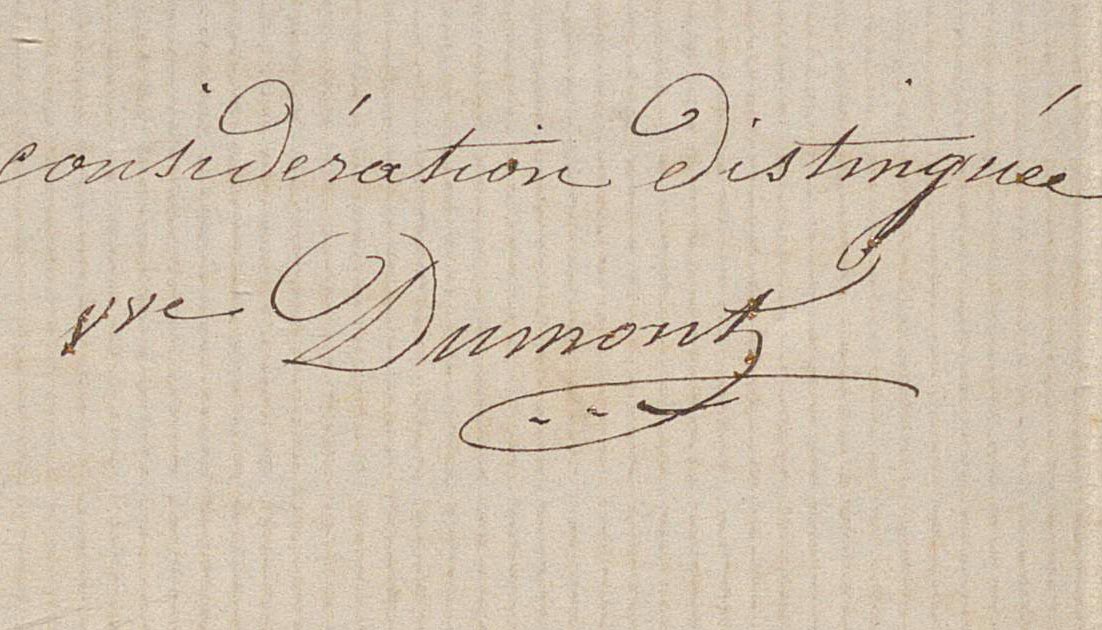 considération distinguée
vve Dumont